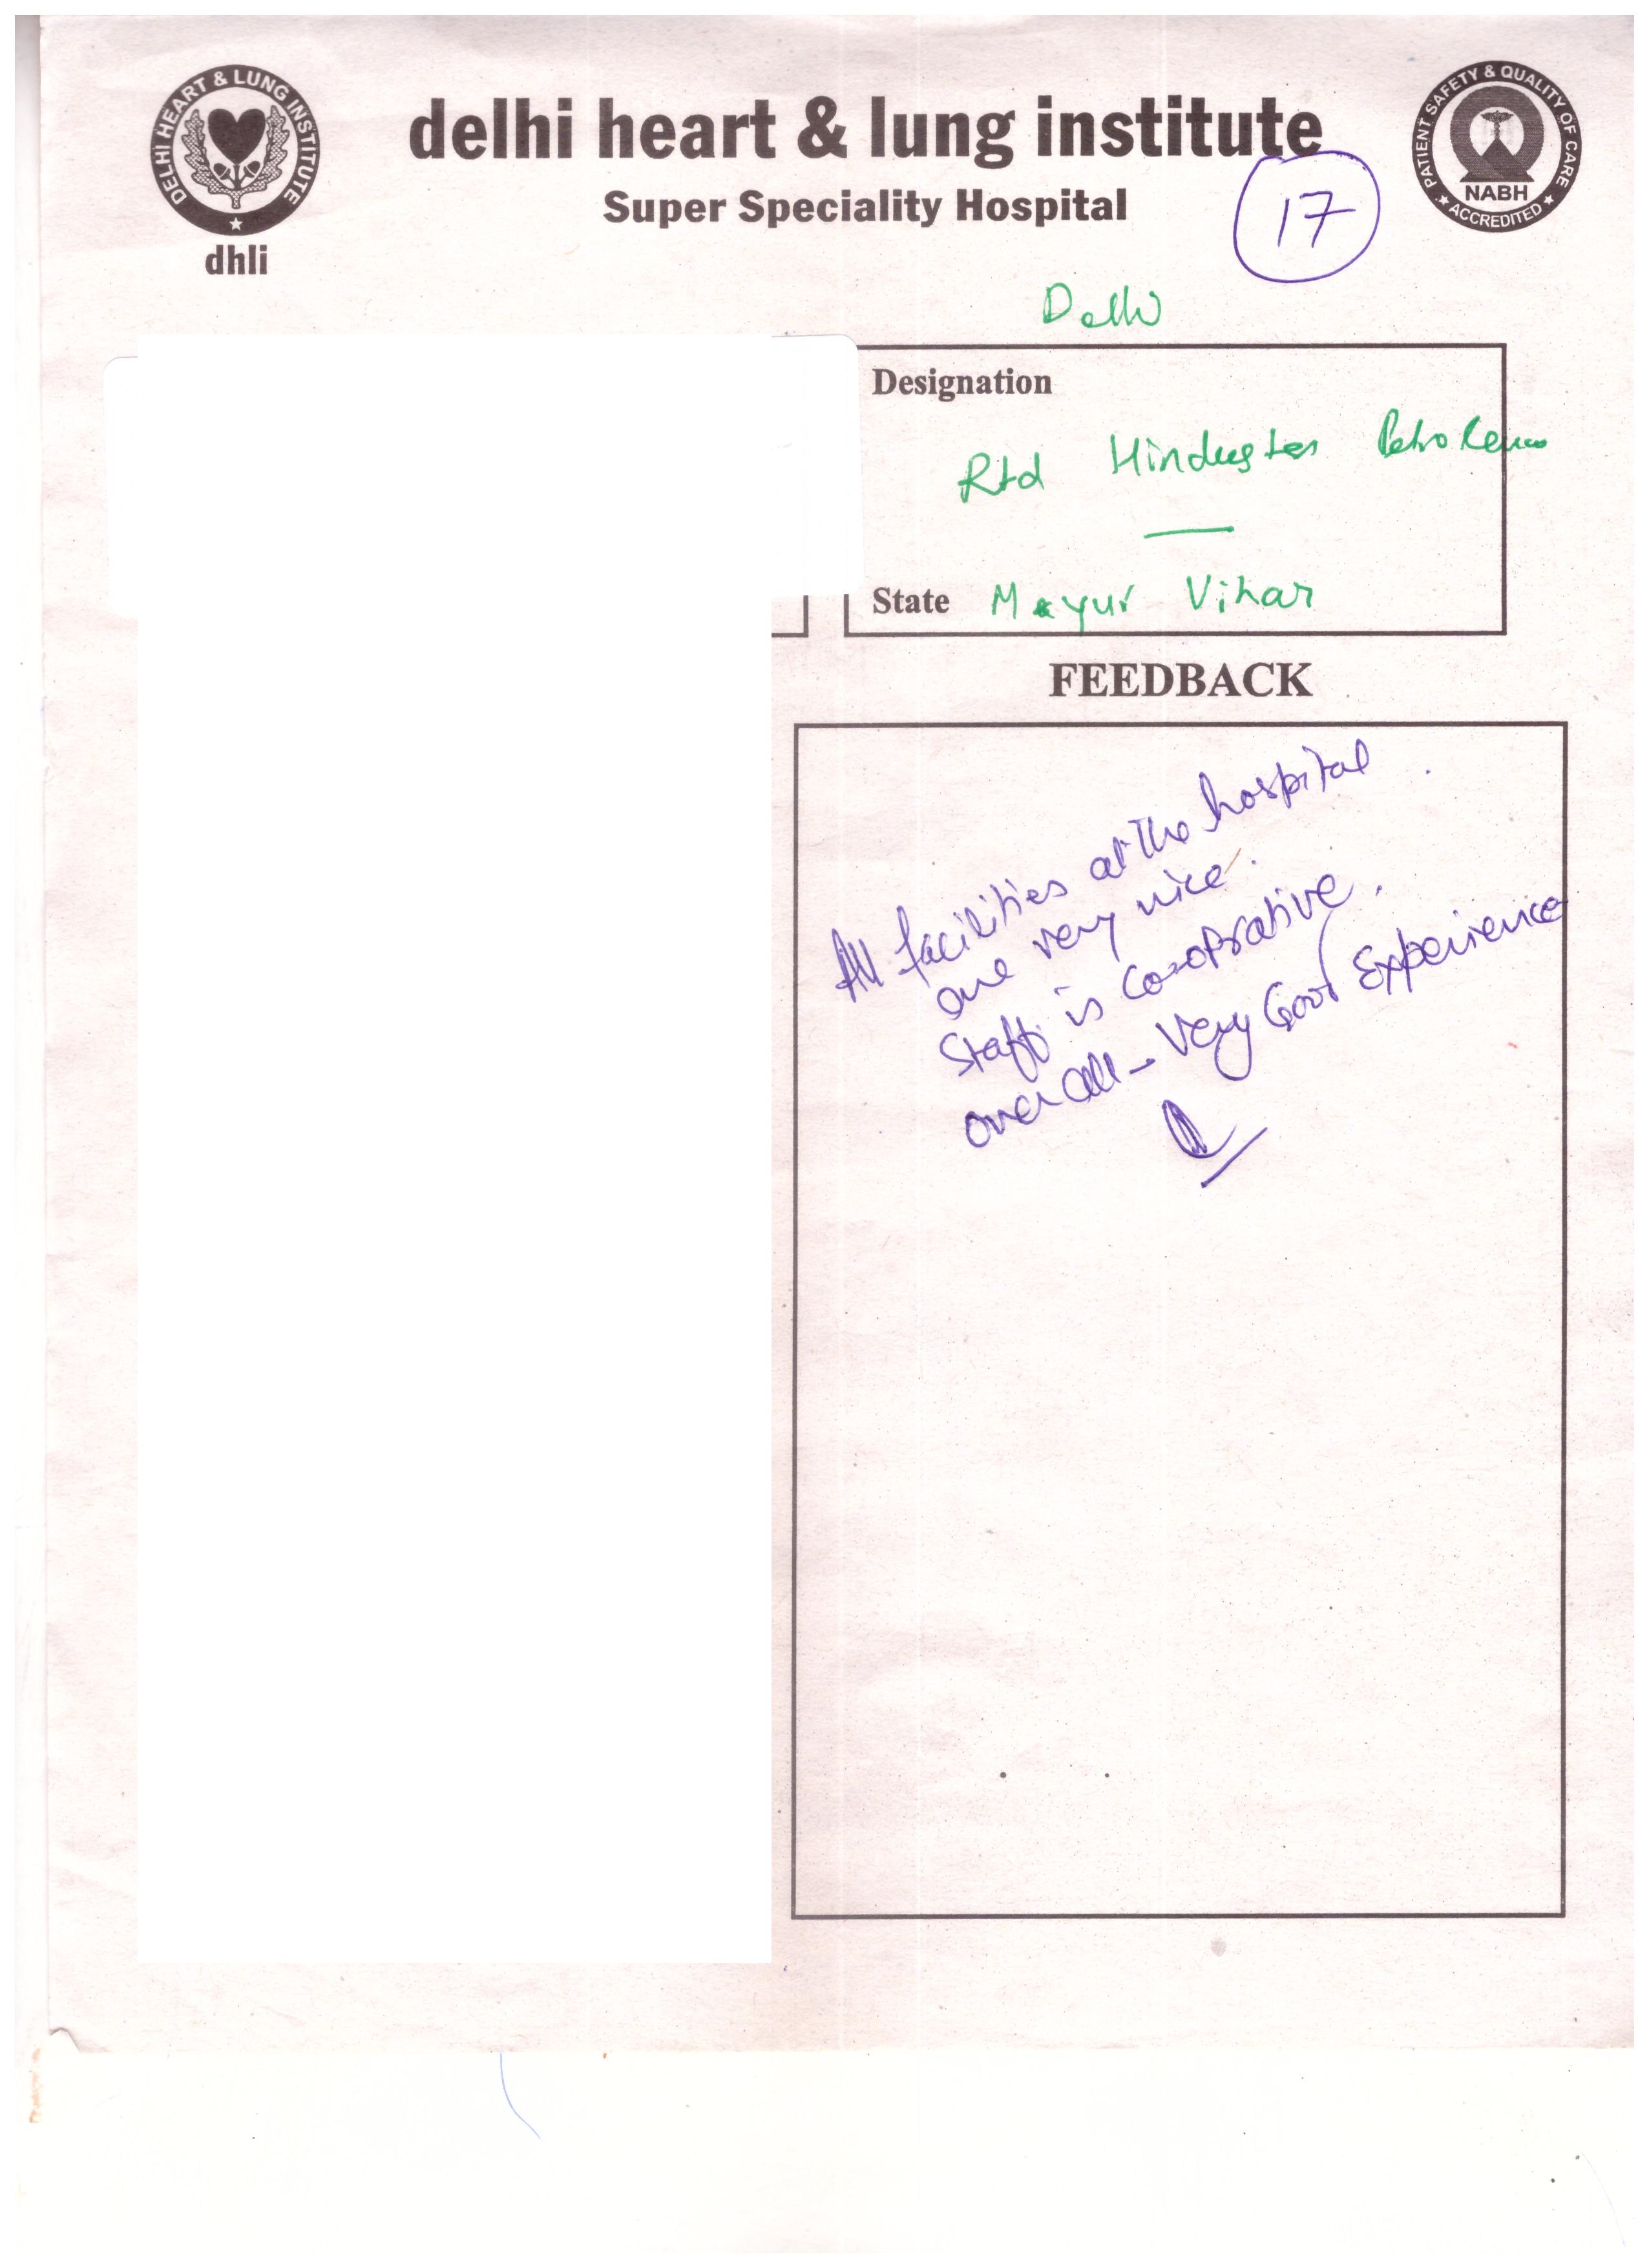 DELHI HEART & LUNG INSTITUTE
dhli
delhi heart & lung institute
Super Speciality Hospital
PATIENT SAFETY & QUALITY OF CARE
NABH
ACCREDITED
17
Delhi
Designation
Rtd Hindustan Petroleum
State Mayur Vihar
FEEDBACK
All facilities at the hospital
are very nice.
Staff is co-oprative.
over all - Very Good Experience